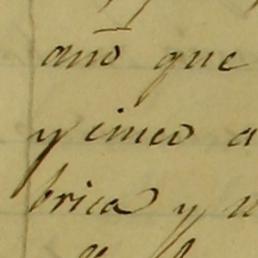 año que
y cinco a
brica y u